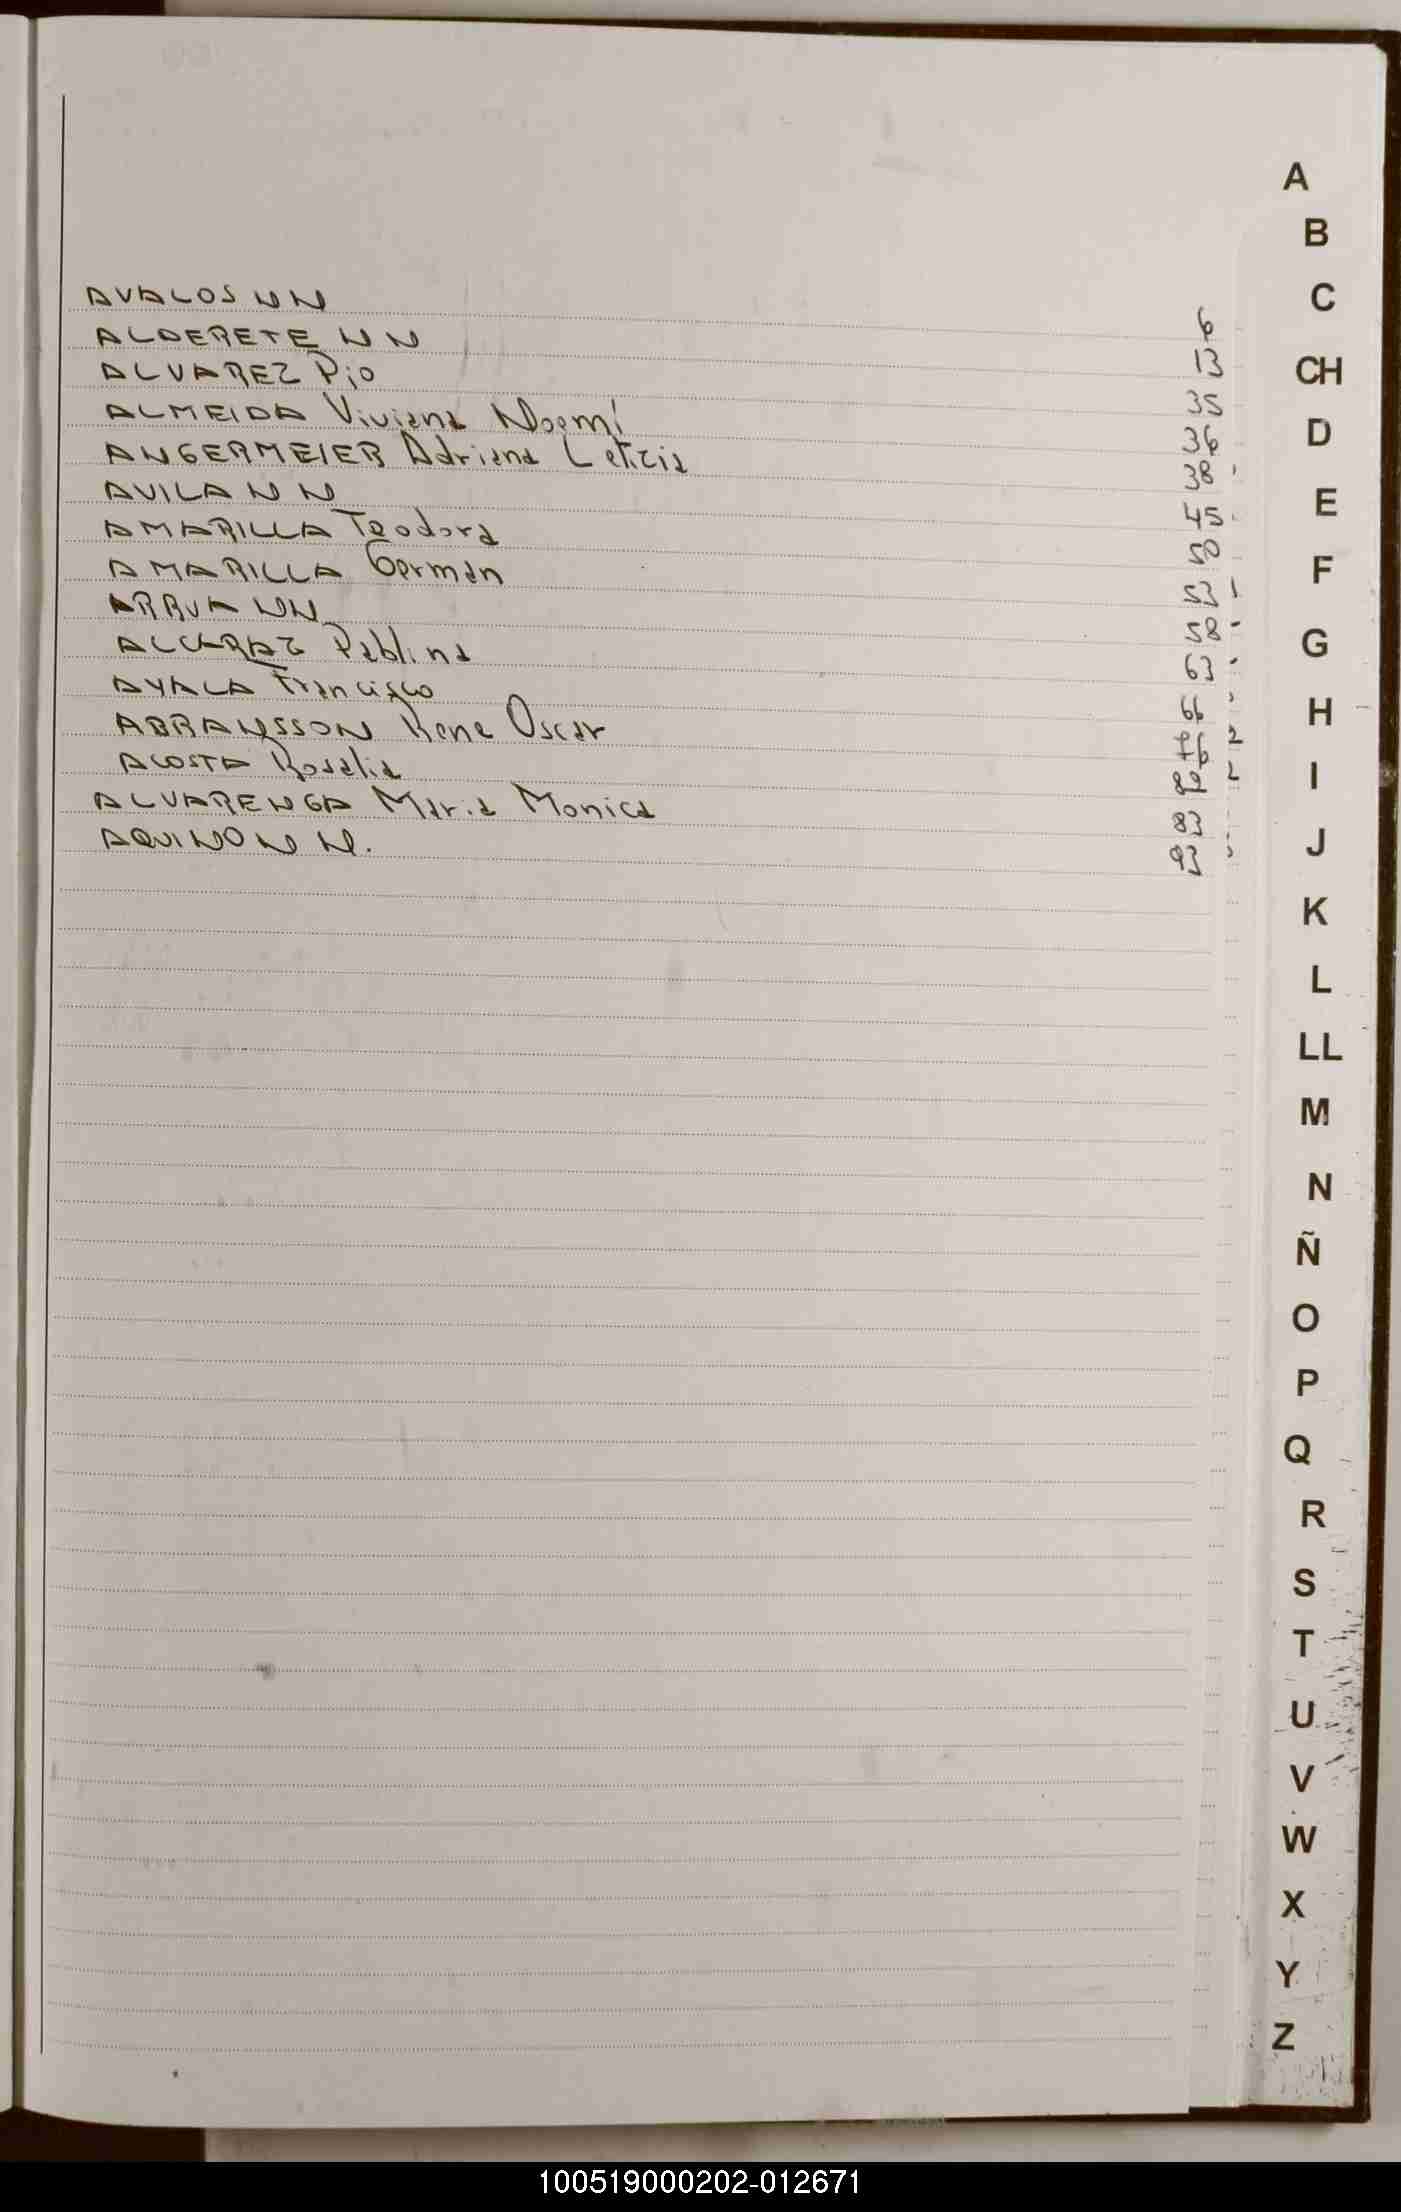 AVALOS NN 6
ALDERETE NN 13
ALVAREZ Pio 35
ALMEIDA Viviana Noemí 36
ANGERMEIER Adriana Leticia 38
AVILA NN 45
AMARILLA Teodora 50
AMARILLA German 53
ARRUA NN 58
ALCARAZ Pablina 63
AYALA Francisco 66
Rene Oscar 76
ACOSTA Rosalia
ALVARENGA Maria Monica 83
AQUINO NN. 93
A
B
C
CH
D
E
F
G
H
I
J
K
L
LL
M
N
Ñ
O
P
Q
R
S
T
U
V
W
X
Y
Z
100519000202-012671